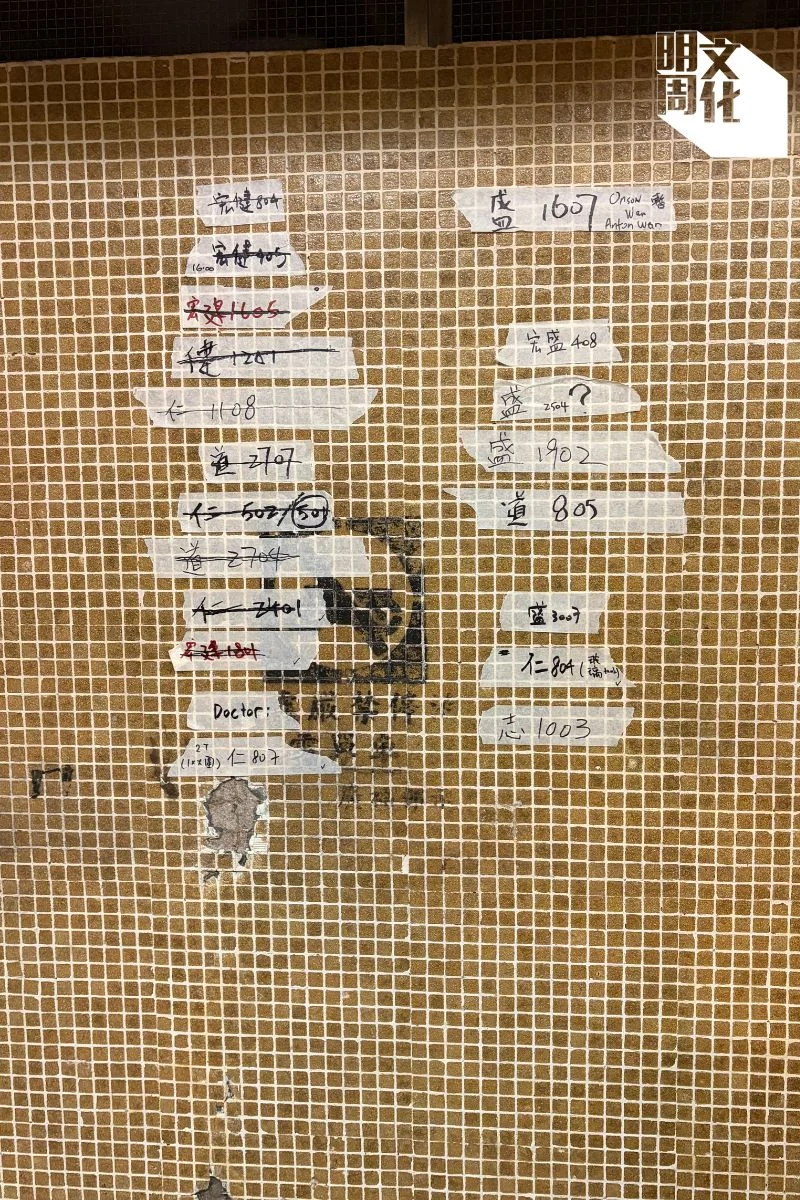 明周文化
宏健804
16:00 宏健405
宏建1605
健1201
仁 1108
道 2707
仁 502/501
道 2704
仁 2401
宏建1801
Doctor:
27
仁 807
盛 1607
Anton Wan
宏盛 408
盛 2504?
盛 1902
道 805
盛 3003
仁 804 (玻璃
志 1003